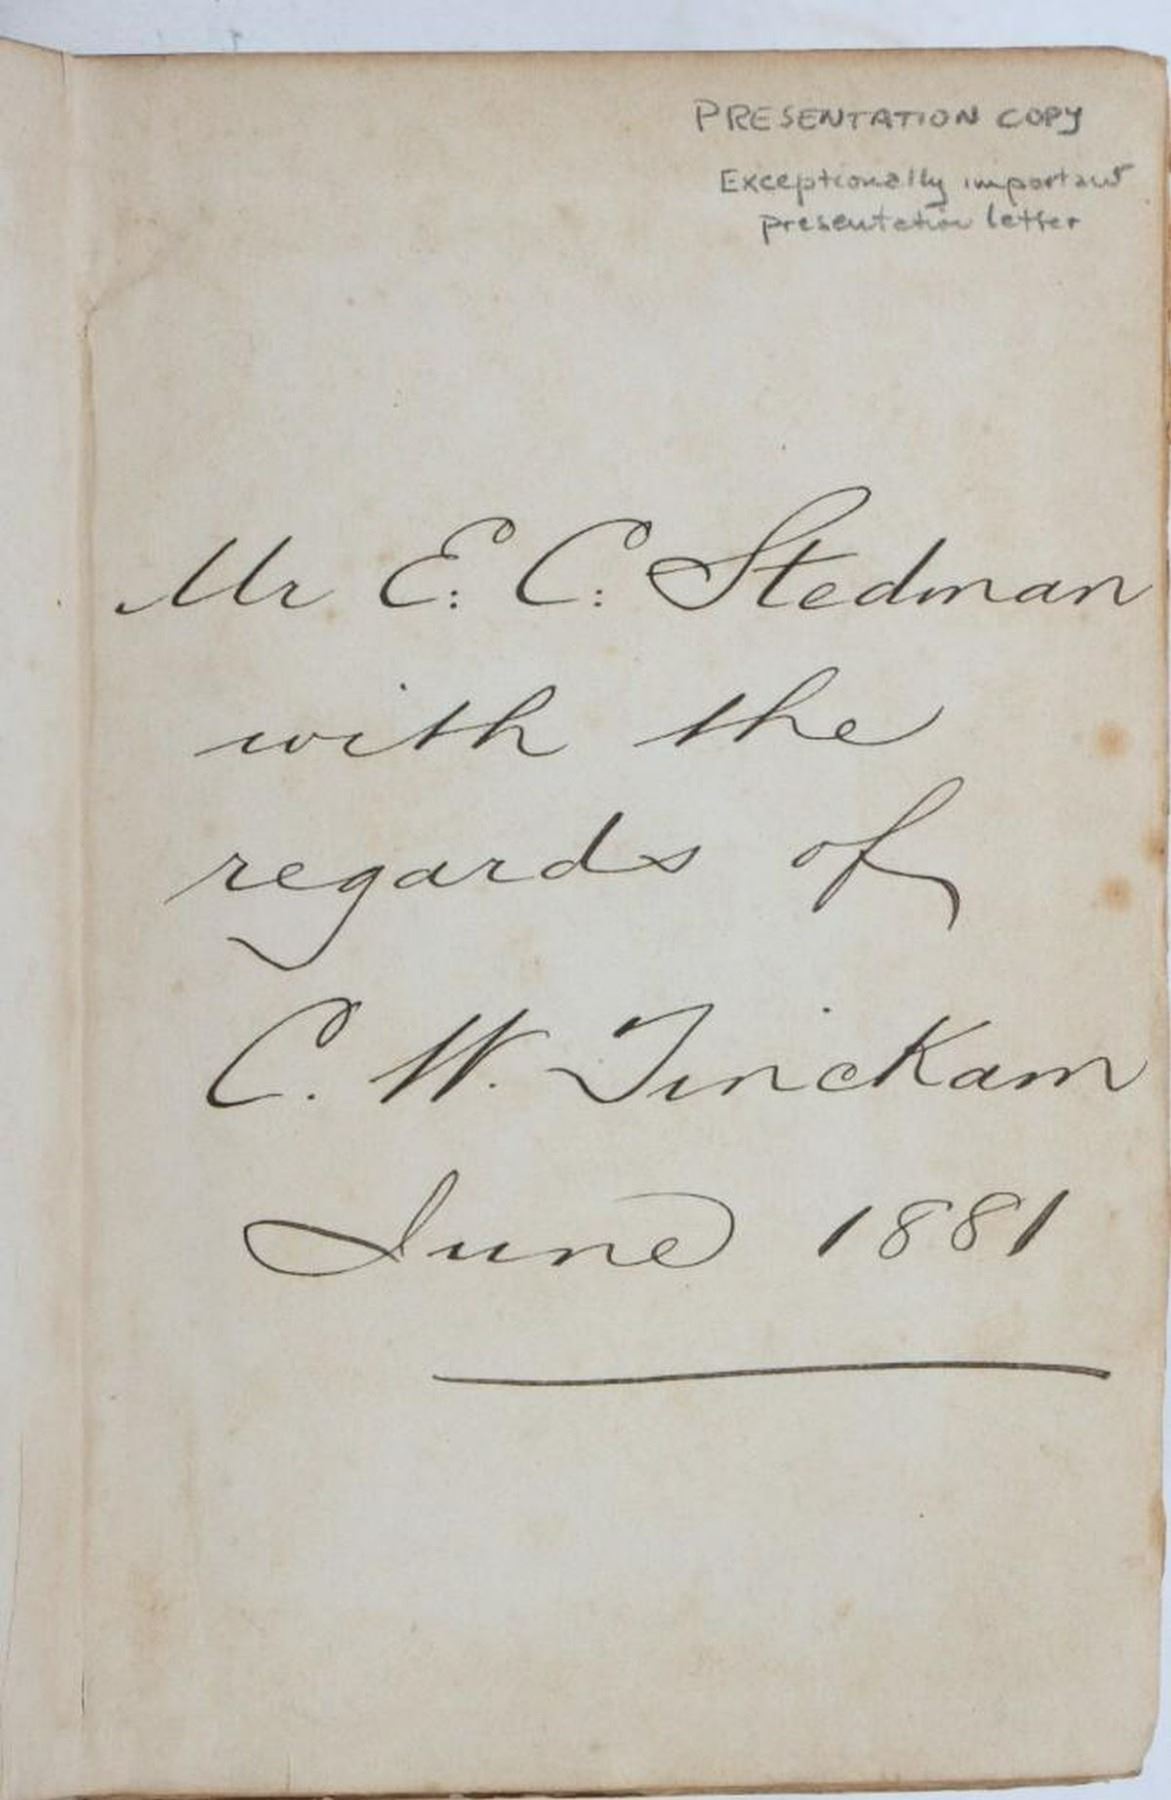 PRESENTATION COPY
Exceptionally important
presentation letter
Mr E. C. Stedman
with the
regards of
C. W. Tinckam
June 1881